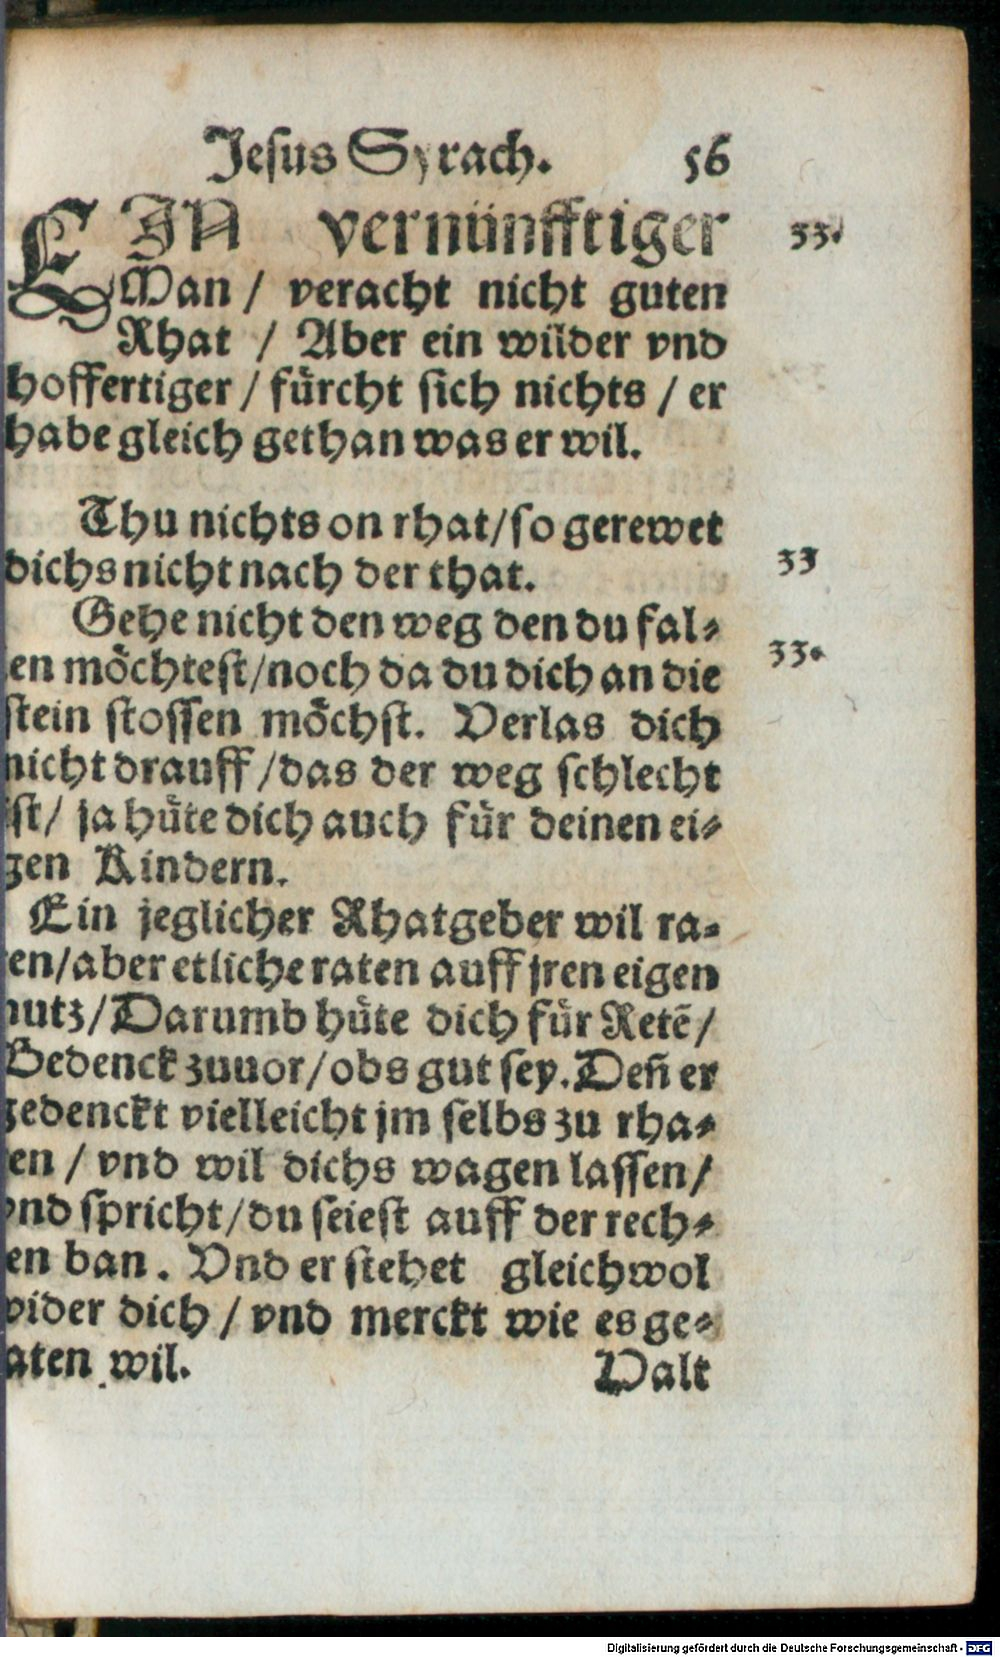 Jesus Syrach. 56
EIN vernünfftiger 33.
Man / veracht nicht guten
Rhat / Aber ein wilder vnd
hoffertiger / fürcht sich nichts / er
habe gleich gethan was er wil.
Thu nichts on rhat/so gerewet
dichs nicht nach der that. 33
Gehe nicht den weg den du fal-
en möchtest/noch da du dich an die 33.
stein stossen möchst. Verlas dich
nicht drauff /das der weg schlecht
ist/ ja hüte dich auch für deinen ei-
gen Kindern.
Ein jeglicher Rhatgeber wil ra-
en/aber etliche raten auff jren eigen
nutz/Darumb hüte dich für Retē/
Bedenck zuuor/obs gut sey. Deñ er
gedenckt vielleicht jm selbs zu rha-
en / vnd wil dichs wagen lassen/
vnd spricht/du seiest auff der rech-
en ban. Vnd er stehet gleichwol
wider dich / vnd merckt wie es ge-
aten wil. Valt
Digitalisierung gefördert durch die Deutsche Forschungsgemeinschaft - DFG